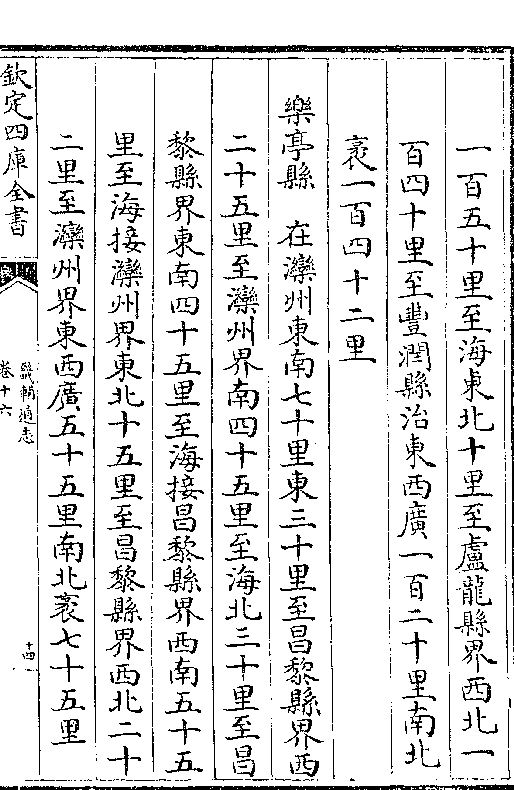 一百五十里至海東北十里至盧龍縣界西北一
百四十里至豐潤縣治東西廣一百二十里南北
袤一百四十二里
樂亭縣　在灤州東南七十里東三十里至昌黎縣界西
二十五里至灤州界南四十五里至海北三十里至昌
黎縣界東南四十五里至海接昌黎縣界西南五十五
里至海接灤州界東北十五里至昌黎縣界西北二十
二里至灤州界東西廣五十五里南北袤七十五里
欽定四庫全書
畿輔通志
卷十六
十四